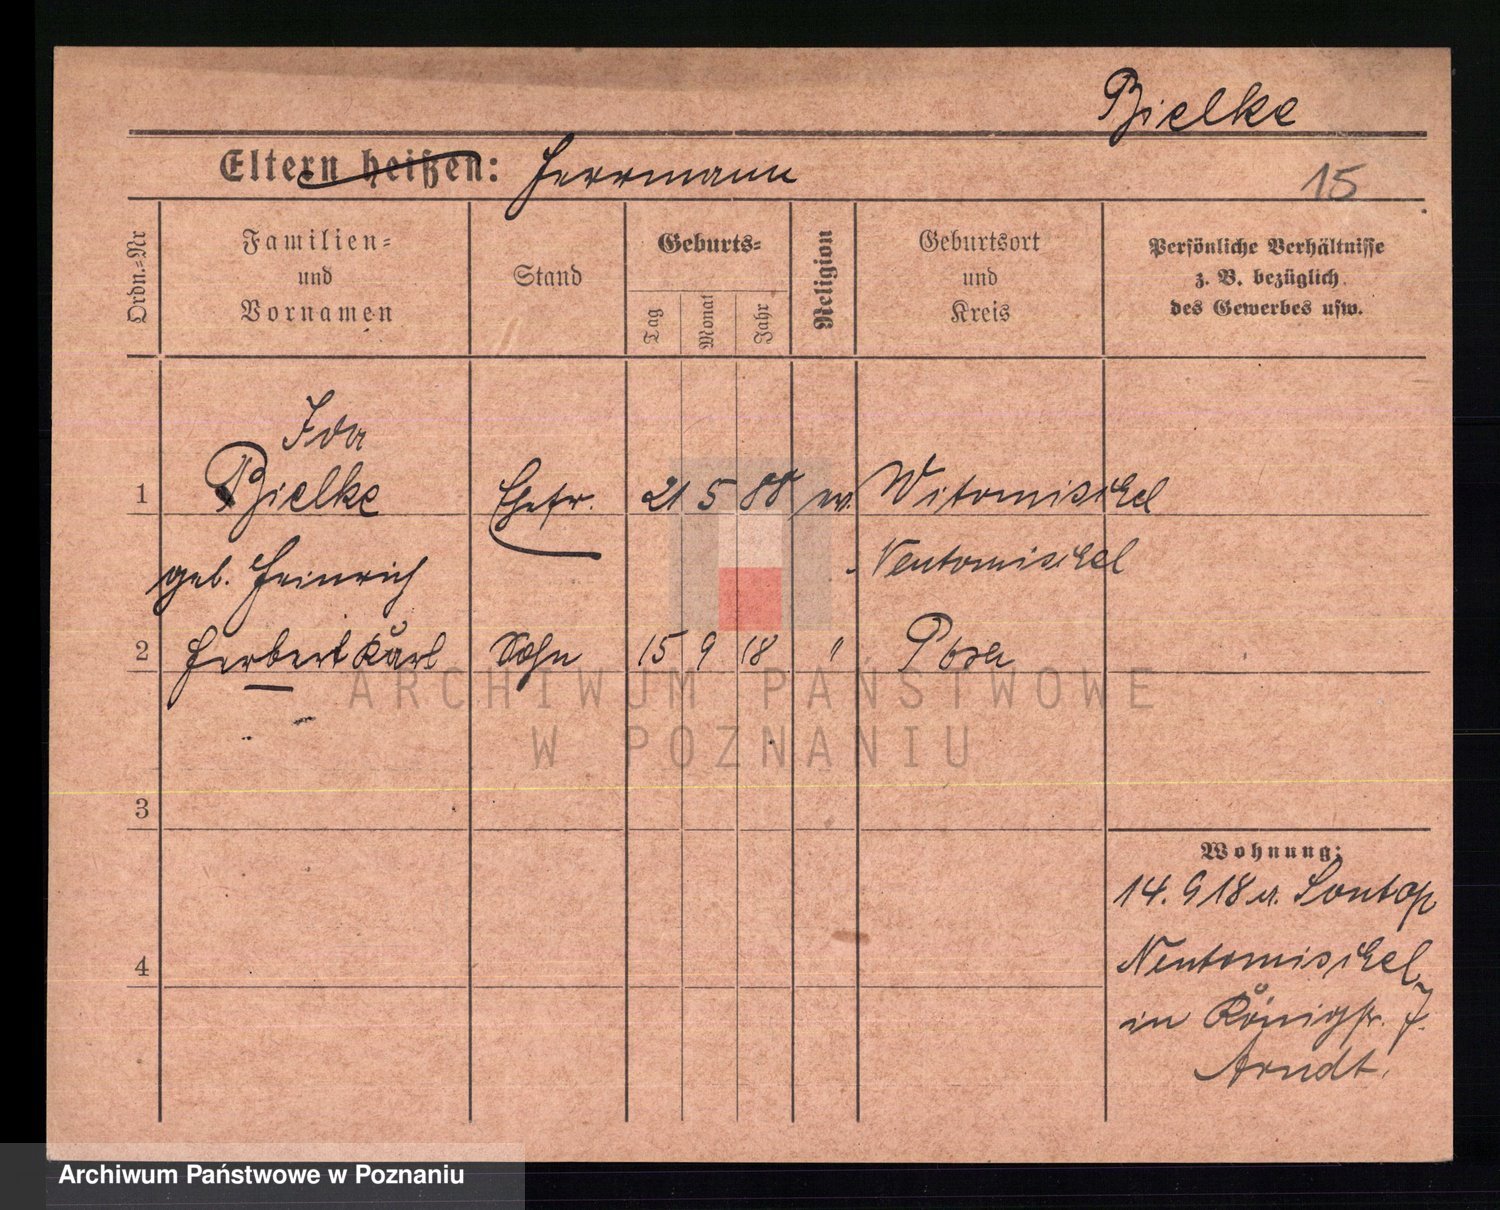 Bielke
Eltern heißen: Herrmann
15
Ordn.-Nr
Familien-
und
Vornamen
Stand
Geburts-
Tag
Monat
Jahr
Religion
Geburtsort
und
Kreis
Persönliche Verhältnisse
z. B. bezüglich
des Gewerbes usw.
Ida
1 Bielke Ehefr. 21 5 88 ev. Witomischel
geb. Heinrich Neutomischel
2 Herbert Karl Sohn 15 9 18 " Posen
3
4
Wohnung:
14. 9 18 Sontop
Neutomischel
in Königstr. 7.
Arndt.
ARCHIWUM PAŃSTWOWE
W POZNANIU
Archiwum Państwowe w Poznaniu